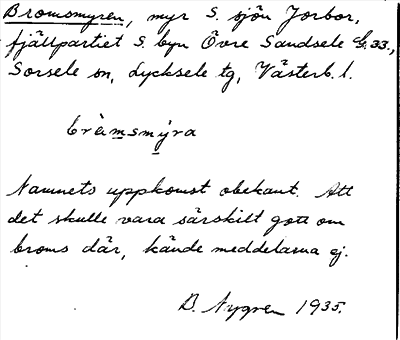 Bromsmyren, myr S. sjön Jorbor,
fjällpartiet S. byn Övre Sandsele G. 33.,
Sorsele sn, Lycksele tg, Västerb. l.
bràmsmýra
Namnets uppkomst obekant. Att
det skulle vara särskilt gott om
broms där, kände meddelarna ej.
B. Nygren 1935.